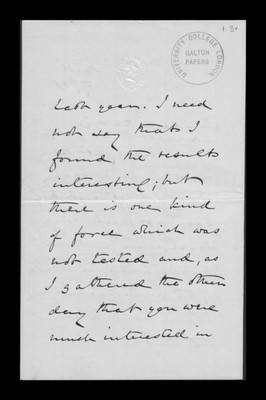 UNIVERSITY COLLEGE LONDON
GALTON
PAPERS
last year. I need
not say that I
found the results
interesting; but
there is one kind
of force which was
not tested and, as
I gathered the other
day that you were
much interested in